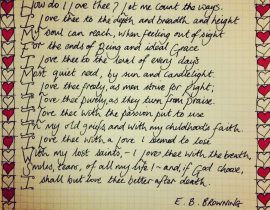 How do I love thee? Let me count the ways.
I love thee to the depth and breadth and height
My soul can reach, when feeling out of sight
For the ends of Being and ideal Grace.
I love thee to the level of every day's
Most quiet need, by sun and candlelight.
I love thee freely, as men strive for Right;
I love thee purely, as they turn from Praise.
I love thee with the passion put to use
In my old griefs, and with my childhood's faith.
I love thee with a love I seemed to lose
With my lost saints, - I love thee with the breath,
Smiles, tears, of all my life! - and, if God choose,
I shall but love thee better after death.
E. B. BROWNING